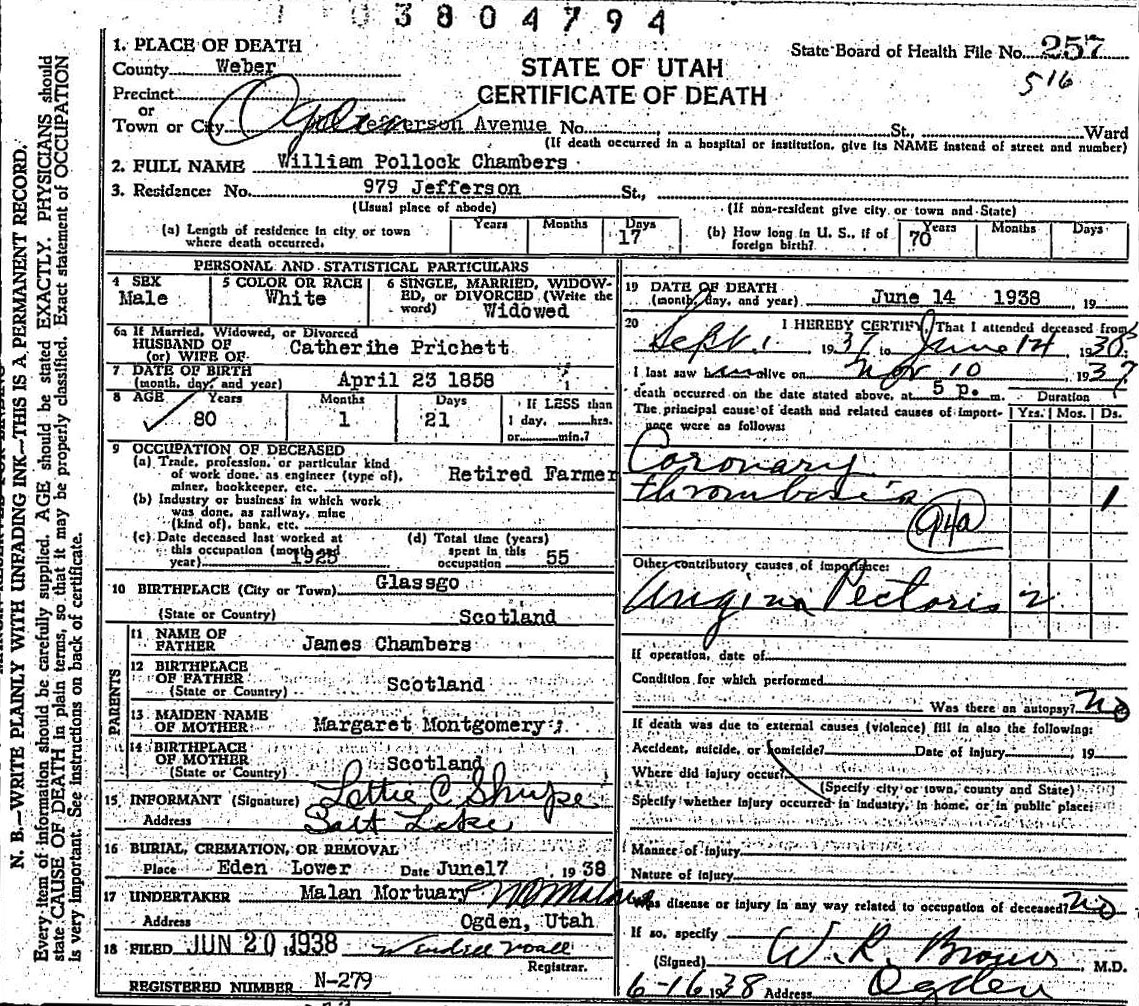 3804794
N. B.—WRITE PLAINLY WITH UNFADING INK—THIS IS A PERMANENT RECORD.
Every item of information should be carefully supplied. AGE should be stated EXACTLY. PHYSICIANS should
state CAUSE OF DEATH in plain terms, so that it may be properly classified. Exact statement of OCCUPATION
is very important. See instructions on back of certificate.
State Board of Health File No. 257
516
STATE OF UTAH
CERTIFICATE OF DEATH
1. PLACE OF DEATH
County Weber
Precinct
or
Town or City Ogden Jefferson Avenue No. St., Ward
(If death occurred in a hospital or institution, give its NAME instead of street and number)
2. FULL NAME William Pollock Chambers
3. Residence: No. 979 Jefferson St.,
(Usual place of abode) (If non-resident give city or town and State)
(a) Length of residence in city or town where death occurred. Years Months Days 17
(b) How long in U. S., if of foreign birth? Years 70 Months Days
PERSONAL AND STATISTICAL PARTICULARS
4 SEX
Male
5 COLOR OR RACE
White
6 SINGLE, MARRIED, WIDOWED, or DIVORCED (Write the word)
Widowed
6a If Married, Widowed, or Divorced
HUSBAND OF
(or) WIFE OF Catherihe Prichett
7 DATE OF BIRTH
(month, day, and year) April 23 1858
8 AGE Years Months Days If LESS than
80 1 21 1 day, hrs.
or min.?
9 OCCUPATION OF DECEASED
(a) Trade, profession, or particular kind
of work done, as engineer (type of),
miner, bookkeeper, etc. Retired Farmer
(b) Industry or business in which work
was done, as railway, mine
(kind of), bank, etc.
(c) Date deceased last worked at
this occupation (month and
year) 1925
(d) Total time (years)
spent in this
occupation 55
10 BIRTHPLACE (City or Town) Glassgo
(State or Country) Scotland
PARENTS
11 NAME OF
FATHER James Chambers
12 BIRTHPLACE
OF FATHER
(State or Country) Scotland
13 MAIDEN NAME
OF MOTHER Margaret Montgomery
14 BIRTHPLACE
OF MOTHER
(State or Country) Scotland
15 INFORMANT (Signature) Lottie C. Shupe
Address Salt Lake
16 BURIAL, CREMATION, OR REMOVAL
Place Eden Lower Date June17 1938
17 UNDERTAKER Malan Mortuary
Address Ogden, Utah
18 FILED JUN 20 1938
Registrar.
REGISTERED NUMBER N-279
19 DATE OF DEATH
(month, day, and year) June 14 1938, 19
20 I HEREBY CERTIFY, That I attended deceased from
Sept. 1 1937 to June 14 1938
I last saw him alive on Nov 10, 1937
death occurred on the date stated above, at 5 p. m.
Duration
Yrs. Mos. Ds.
The principal cause of death and related causes of importance were as follows:
Coronary
thrombosis 1
94a
Other contributory causes of importance:
Angina Pectoris 2
If operation, date of
Condition for which performed
Was there an autopsy? No
If death was due to external causes (violence) fill in also the following:
Accident, suicide, or homicide? Date of injury 19
Where did injury occur?
(Specify city or town, county and State)
Specify whether injury occurred in industry, in home, or in public place:
Manner of injury
Nature of injury
Was disease or injury in any way related to occupation of deceased? No
If so, specify
(Signed) W. R. Brown, M.D.
6-16 1938 Address Ogden